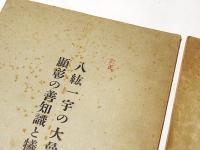 八紘一宇の大
顕彰の善知識と